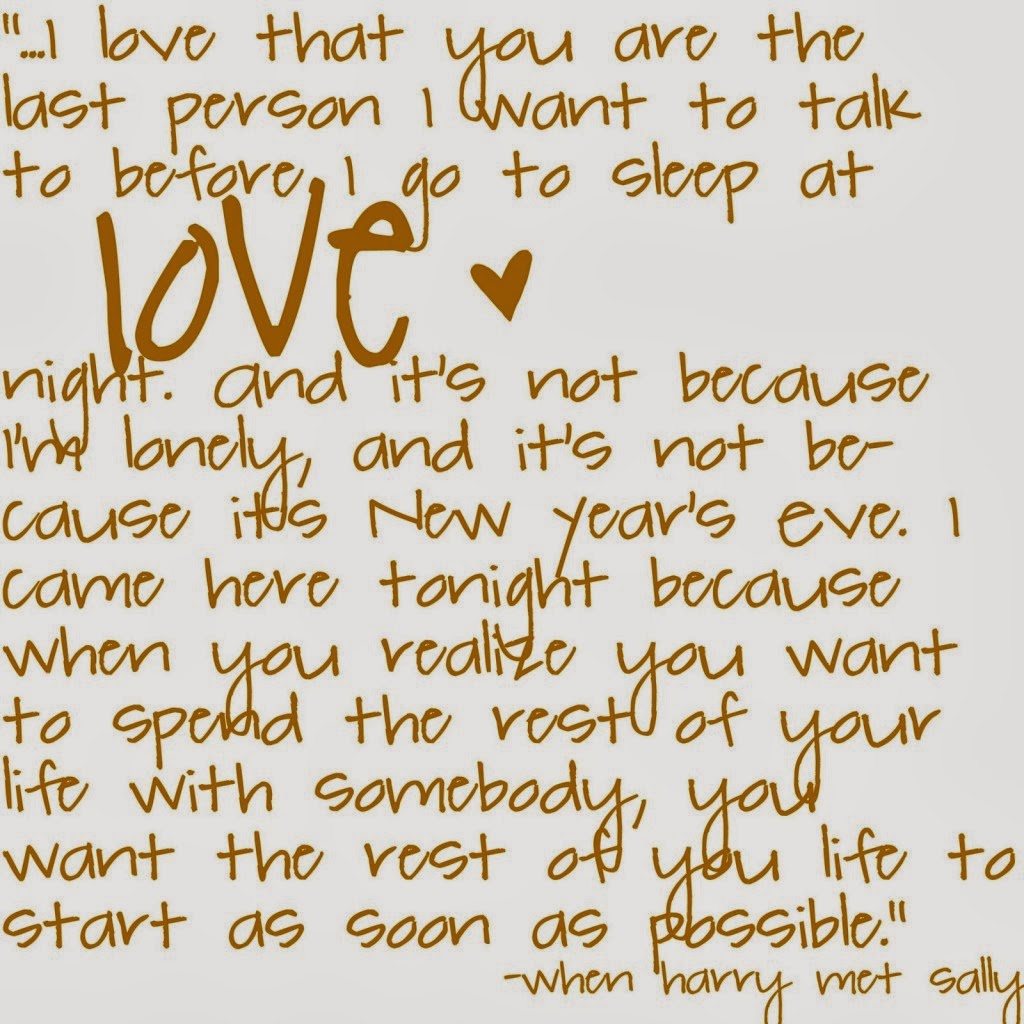 "...I love that you are the
last person I want to talk
to before I go to sleep at
love
night. and it's not because
I'm lonely, and it's not be-
cause it's New Year's Eve. I
came here tonight because
when you realize you want
to spend the rest of your
life with somebody, you
want the rest of you life to
start as soon as possible."
-when harry met sally